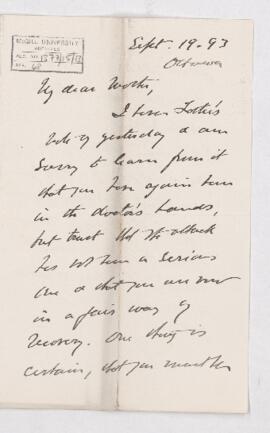 McGILL UNIVERSITY
ARCHIVES
ACC. NO.
REF.
Sept. 19. 93
Ottawa
My dear Mother,
I have Father's
note of yesterday & am
sorry to learn from it
that you have again been
in the doctor's hands,
but trust that the attack
has not been a serious
one & that you are now
in a fair way of
recovery. One thing is
certain, that you must be